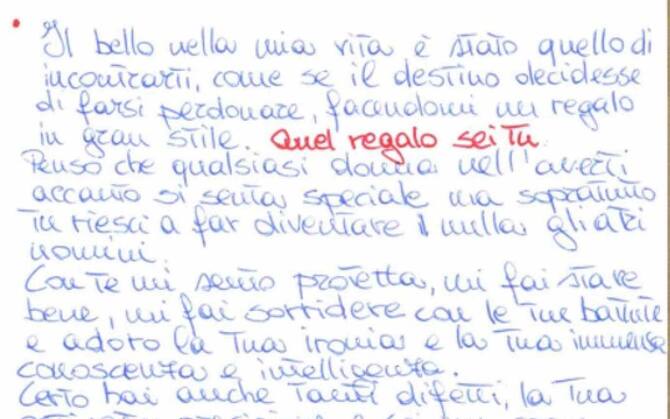 Il bello nella mia vita è stato quello di
incontrarti, come se il destino decidesse
di farsi perdonare, facendomi un regalo
in gran stile. Quel regalo sei Tu
Penso che qualsiasi donna nell'averti
accanto si senta speciale ma sopratutto
tu riesci a far diventare il nulla gli altri
uomini.
Con Te mi sento protetta, mi fai stare
bene, mi fai sorridere con le Tue battute
e adoro la Tua ironia e la Tua immensa
conoscenza e intelligenza.
Certo hai anche Tanti difetti, la Tua